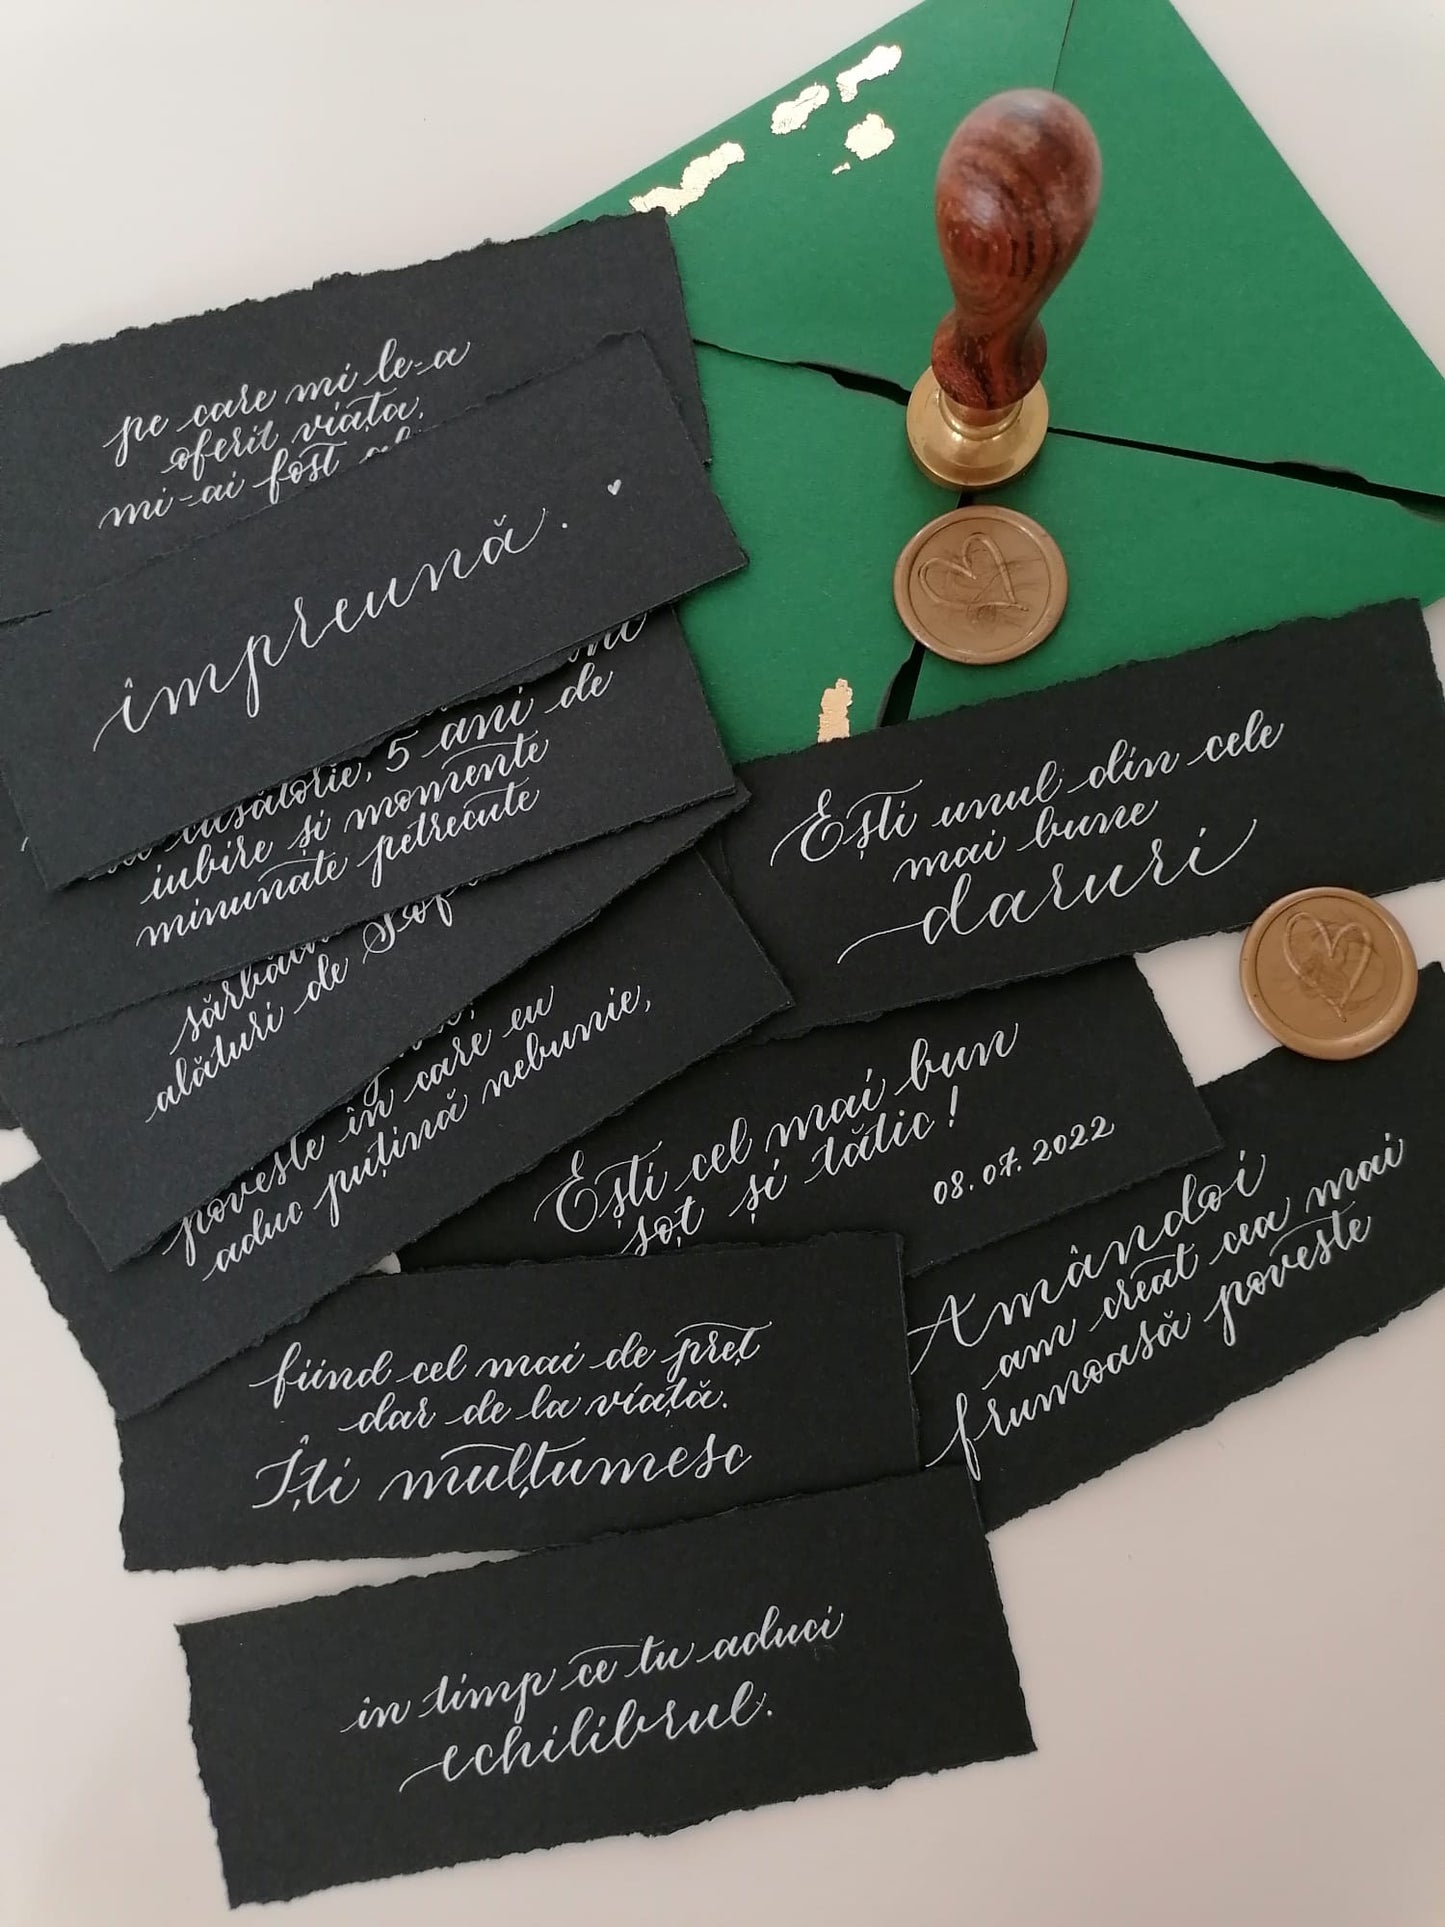 pe care mi le-a
oferit viața,
mi-ai fost
împreună.
5 ani de
iubire și momente
minunate petrecute
alături de
poveste în care eu
aduc puțină nebunie,
Ești unul din cele
mai bune
daruri
Ești cel mai bun
soț și tătic!
08.07.2022
Amândoi
am creat cea mai
frumoasă poveste
fiind cel mai de preț
dar de la viață.
Îți mulțumesc
in timp ce tu aduci
echilibrul.